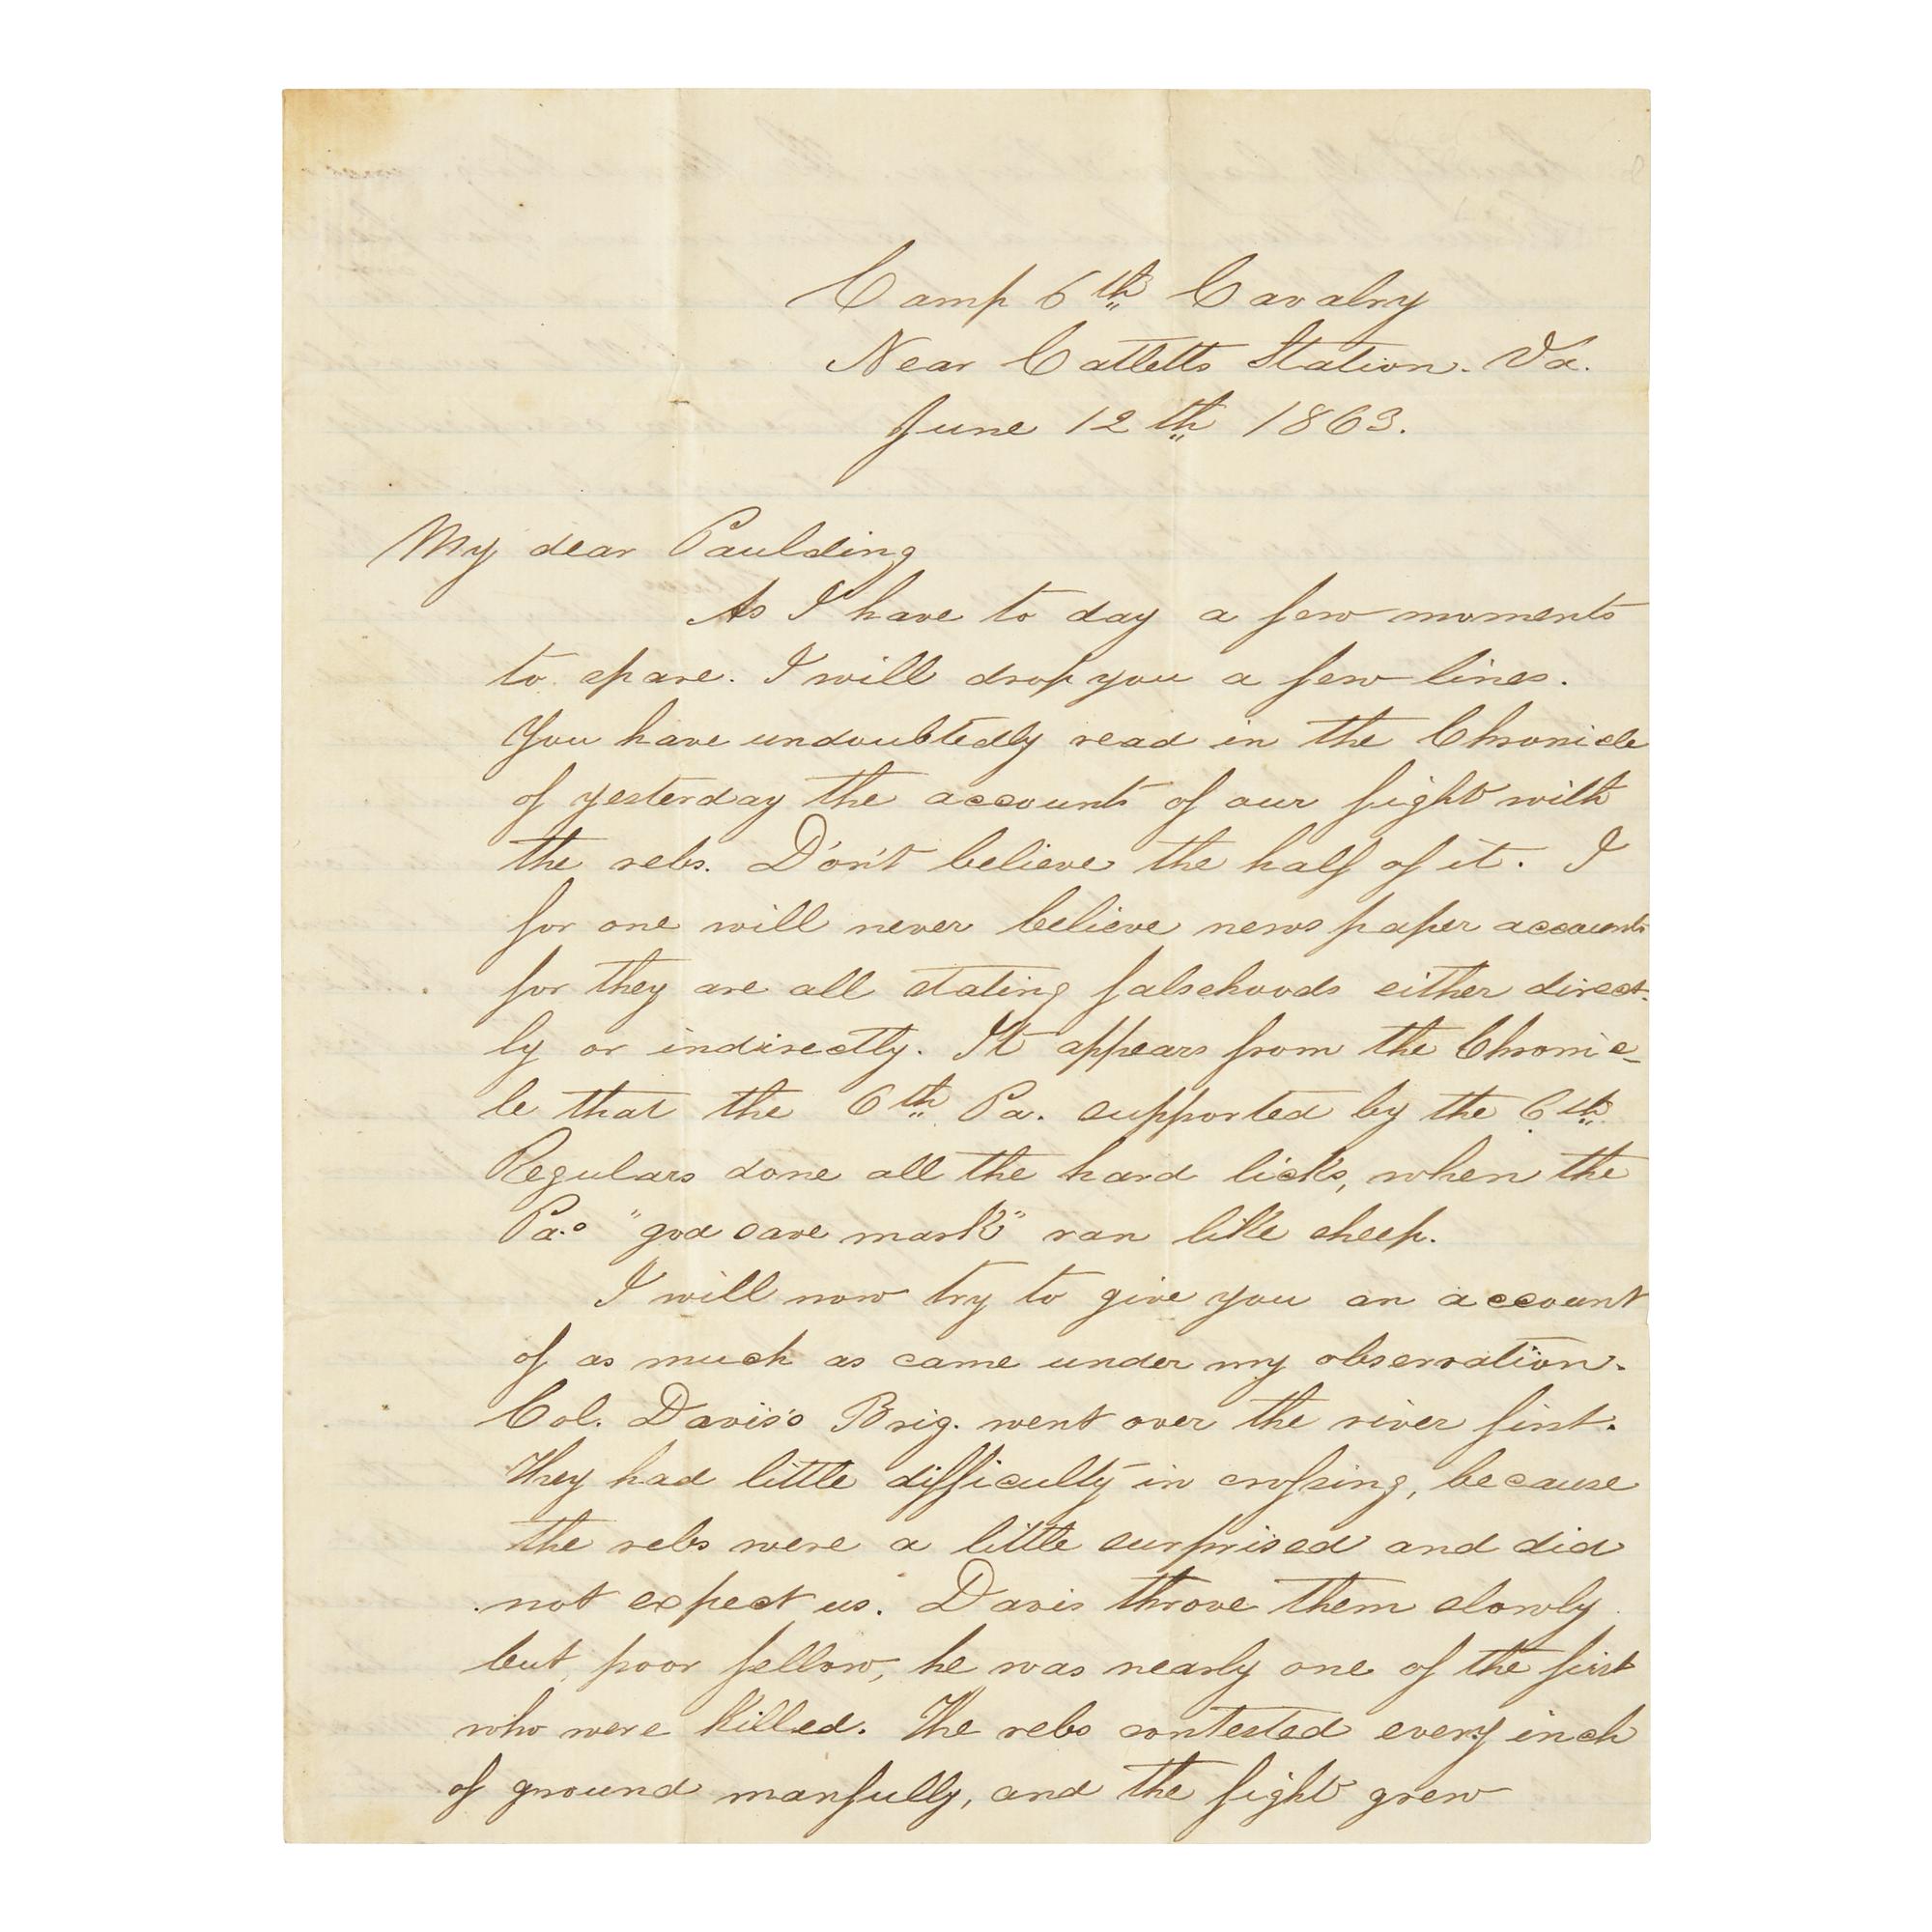 Camp 6th Cavalry
Near Catletts Station. Va.
June 12th 1863.
My dear Paulding
As I have to day a few moments
to spare. I will drop you a few lines.
You have undoubtedly read in the Chronicle
of yesterday the accounts of our fight with
the rebs. Don't believe the half of it. I
for one will never believe news paper accounts
for they are all stating falsehoods either direct-
ly or indirectly. It appears from the Chronic-
le that the 6th Pa. supported by the 6th
Regulars done all the hard licks, when the
Pa.s "god save mark" ran like sheep.
I will now try to give you an account
of as much as came under my observation.
Col. Davis's Brig. went over the river first.
They had little difficulty in crossing, because
the rebs were a little surprised and did
not expect us. Davis throve them slowly
but, poor fellow, he was nearly one of the first
who were killed. The rebs contested every inch
of ground manfully, and the fight grew